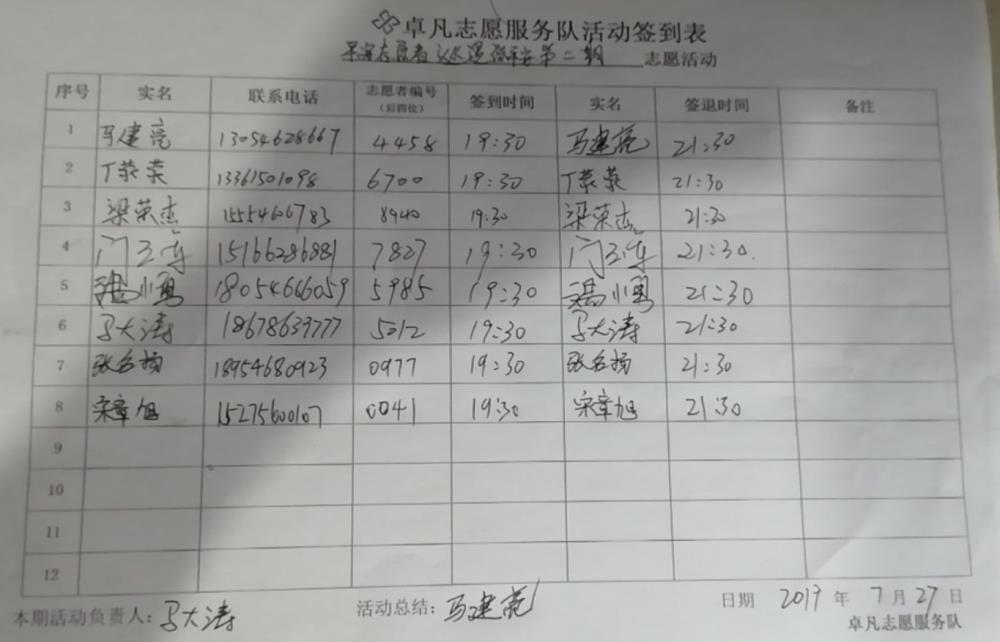 卓凡志愿服务队活动签到表
平安志愿者 第二期 志愿活动
序号 实名 联系电话 志愿者编号（后四位） 签到时间 实名 签退时间 备注
1 马建亮 13054628667 4458 19:30 马建亮 21:30
2 丁荣荣 13361501098 6700 19:30 丁荣荣 21:30
3 梁荣杰 15554606783 8940 19:30 梁荣杰 21:30
4 门 15166286881 7827 19:30 门 21:30
5 冯小勇 18054666059 5985 19:30 冯小勇 21:30
6 马大涛 18678639777 5012 19:30 马大涛 21:30
7 张名扬 18954680923 0977 19:30 张名扬 21:30
8 宋章旭 15275600107 0041 19:30 宋章旭 21:30
9
10
11
12
本期活动负责人：马大涛 活动总结：马建亮 日期 2019 年 7 月 27 日
卓凡志愿服务队